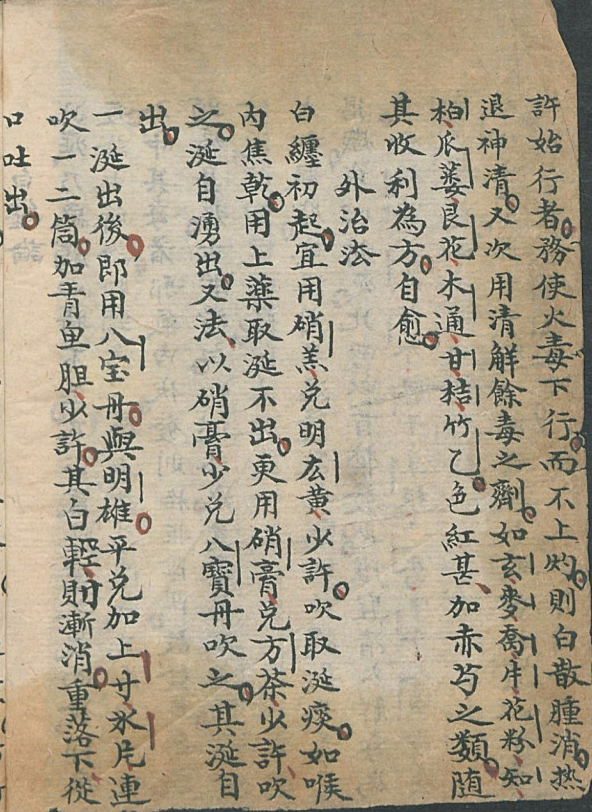 許始行者務使火毒下行而不上灼則白散腫消熱
退神清又次用清解餘毒之劑如玄麥喬片花粉知
柏瓜蔞艮花木通甘桔竹乙色紅甚加赤芍之類随
其收利為方自愈
外治法
白纏初起宜用硝羔兌明玄黃少許吹取涎痰如喉
內焦乾用上藥取涎不出更用硝膏兌方茶少許吹
之涎自湧出又法以硝膏少兌八寶丹吹之其涎自
出
一涎出後即用八宝丹與明雄平兌加上廾氷片連
吹一二筒加青魚胆少許其白輕則漸消重落下從
口吐出